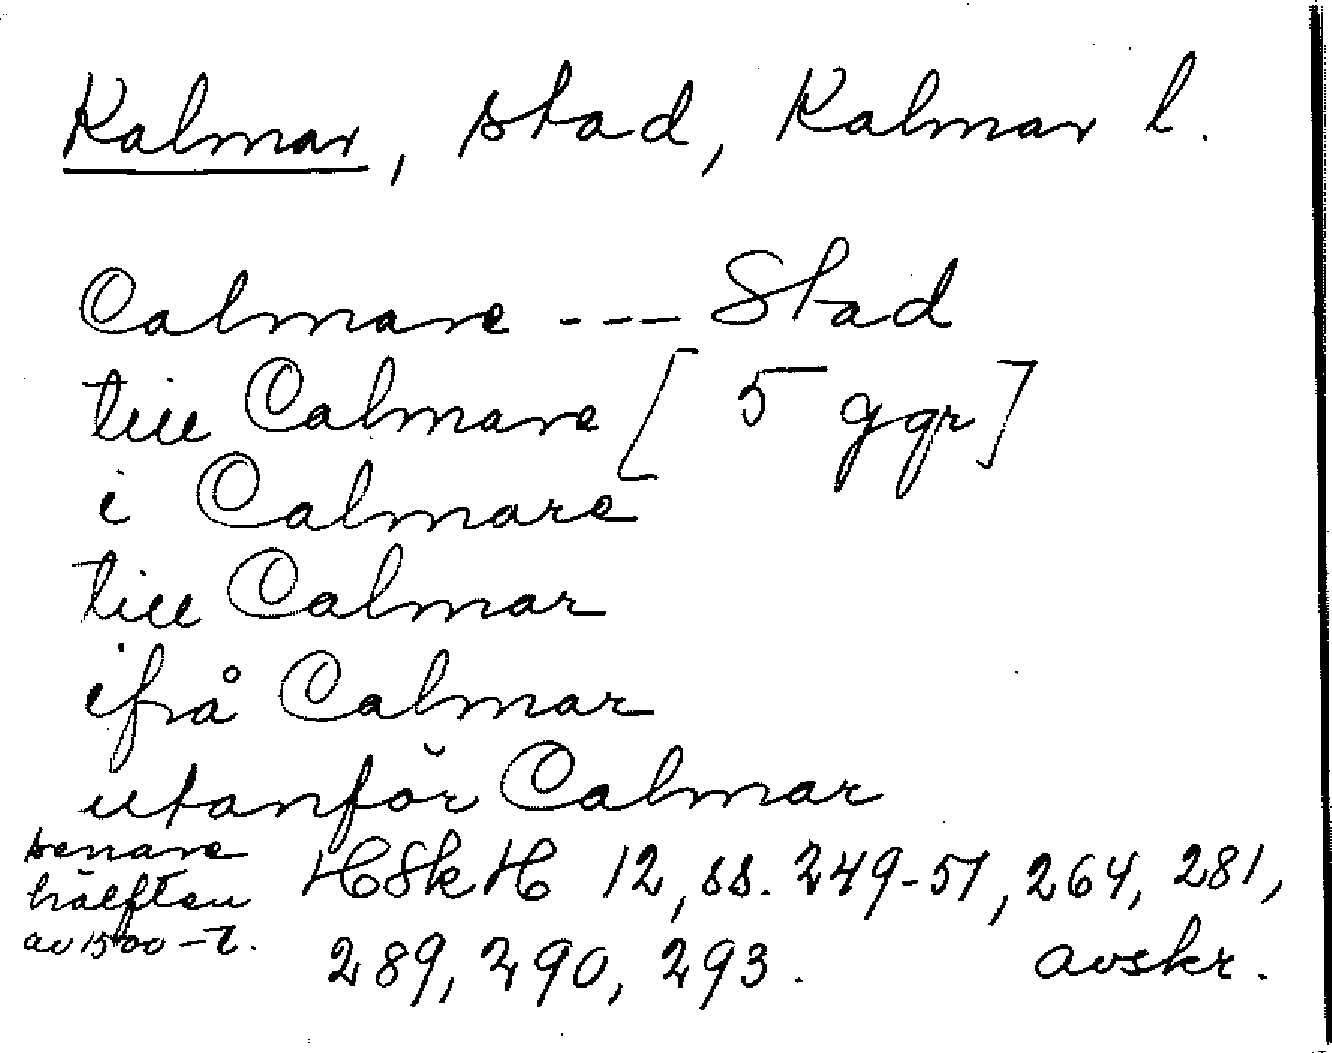 Kalmar, stad, Kalmar l.
Calmare --- Stad
till Calmare [5 ggr]
i Calmare
till Calmar
ifrå Calmar
utanför Calmar
senare
hälften
av 1500-t.
HSkH 12, ss. 249-51, 264, 281,
289, 290, 293. avskr.